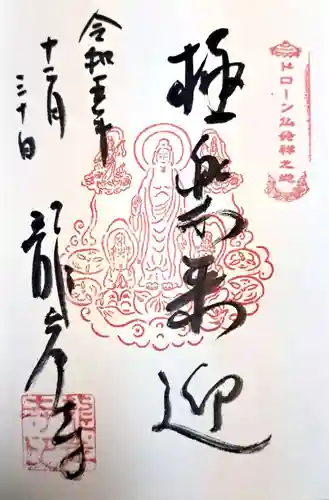 ドローン仏發祥之地
極楽来迎
令和五年
十二月
三十日
龍岸寺